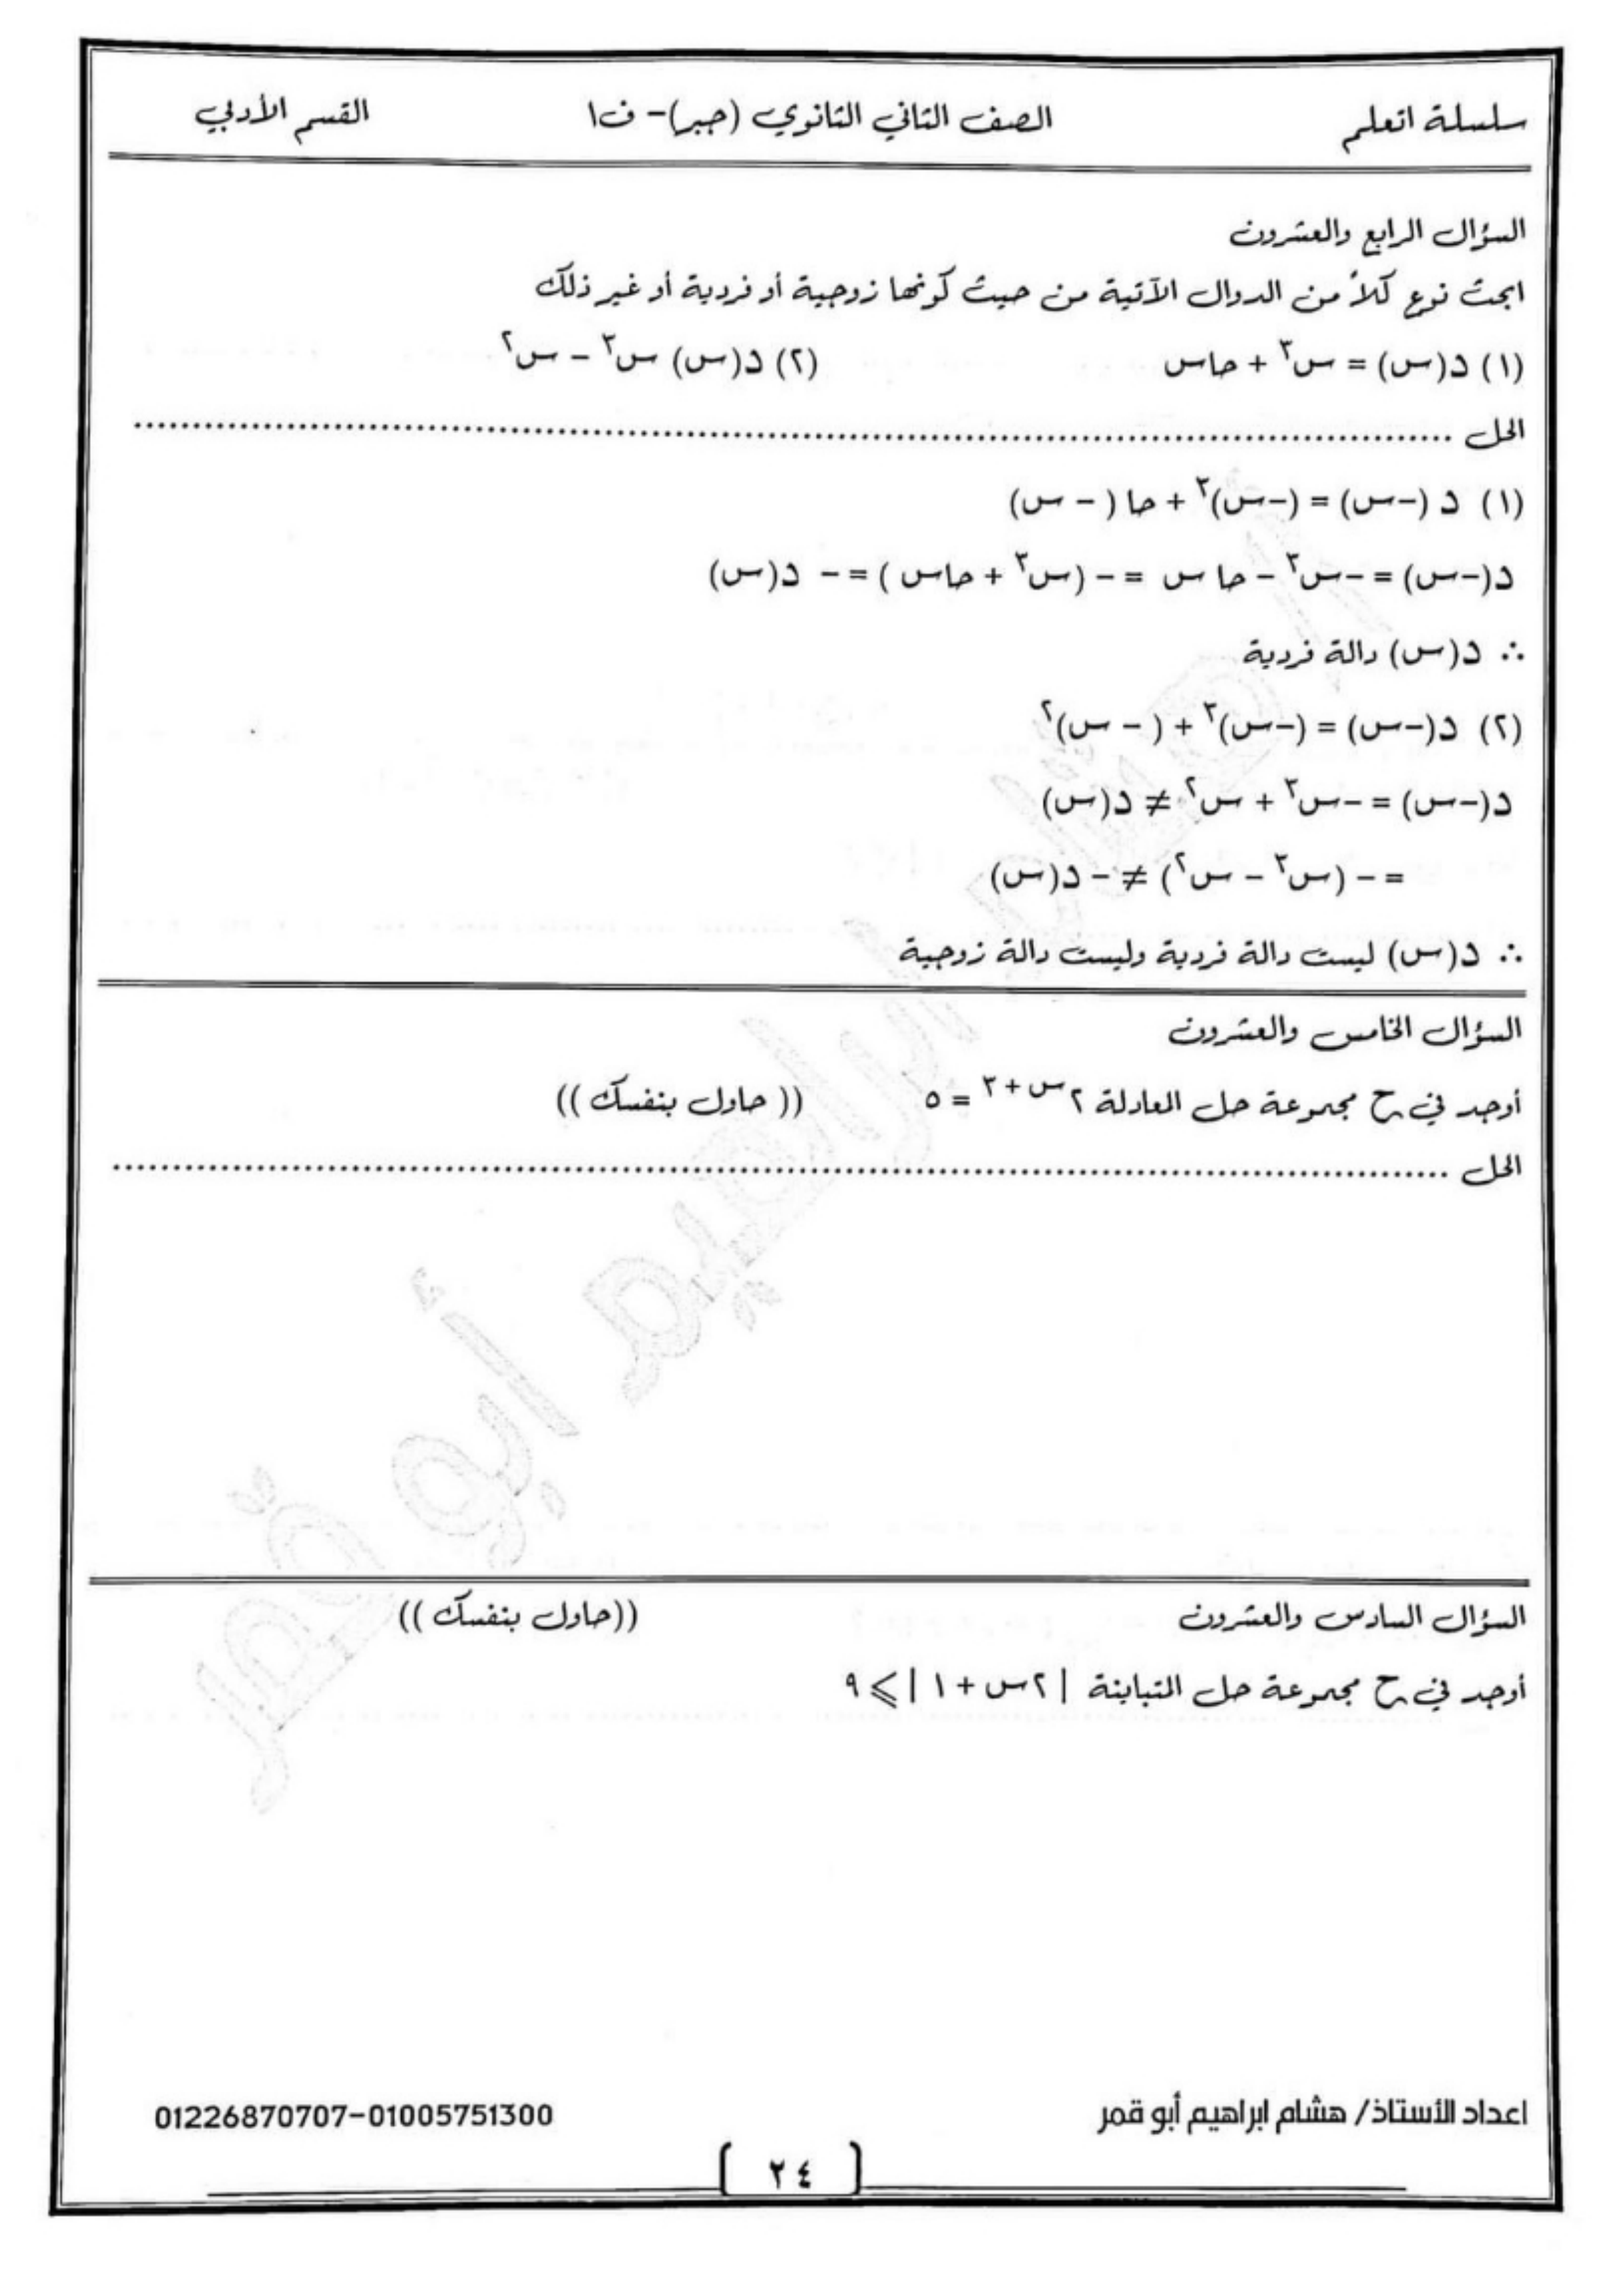 سلسلة اتعلم الصف الثاني الثانوي (جبر)- ف١ القسم الأدبي
السؤال الرابع والعشرون
ابحث نوع كلاً من الدوال الآتية من حيث كونها زوجية أو فردية أو غير ذلك
(١) د(س) = س٣ + حاس (٢) د(س) س٣ – س٢
الحل ........................................................................
(١) د (–س) = (–س)٣ + حا ( – س)
د(–س) = –س٣ – حا س = – (س٣ + حاس ) = – د(س)
∴ د(س) دالة فردية
(٢) د(–س) = (–س)٣ + ( – س)٢
د(–س) = –س٣ + س٢ ≠ د(س)
= – (س٣ – س٢) ≠ – د(س)
∴ د(س) ليست دالة فردية وليست دالة زوجية
السؤال الخامس والعشرون
أوجد في ح مجموعة حل المعادلة ٢س + ٣ = ٥ (( حاول بنفسك ))
الحل ........................................................................
السؤال السادس والعشرون ((حاول بنفسك ))
أوجد في ح مجموعة حل المتباينة | ٢س + ١ | ⩾ ٩
اعداد الأستاذ/ هشام ابراهيم أبو قمر 01226870707-01005751300
[ ٢٤ ]
هشام ابراهيم أبو قمر